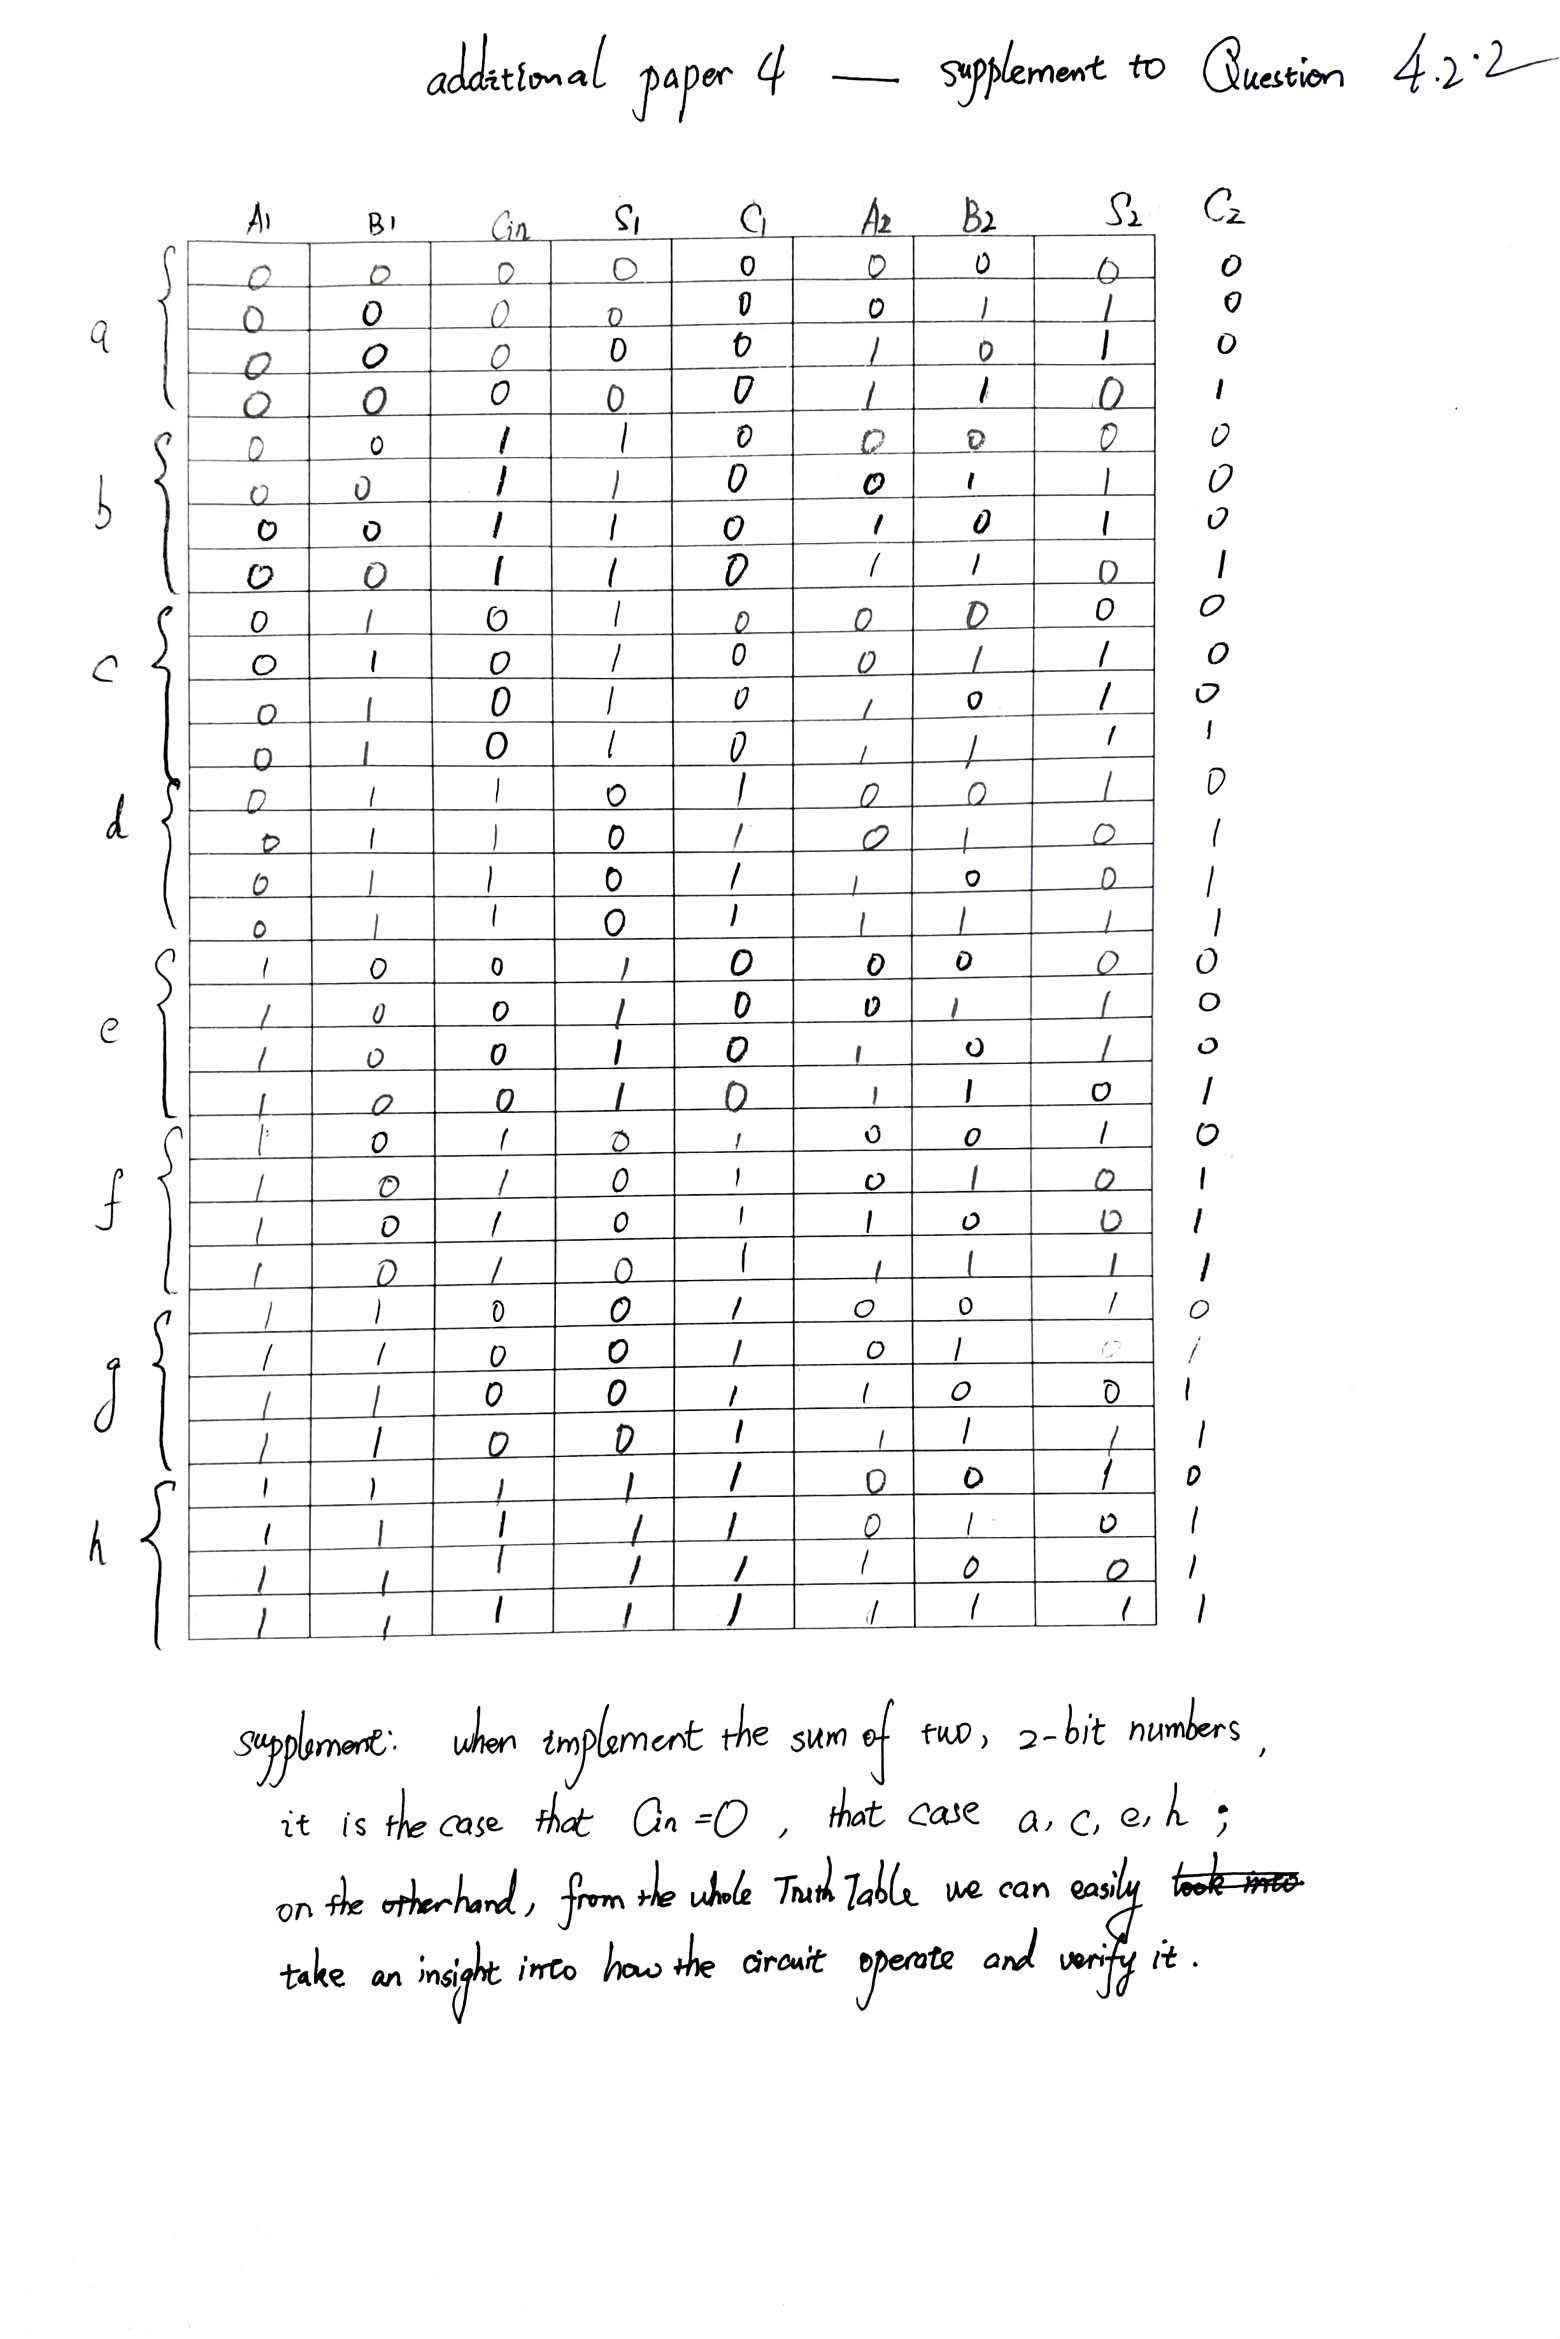 additional paper 4 — supplement to Question 4.2.2
A1 B1 Cin S1 C1 A2 B2 S2 C2
a
0 0 0 0 0 0 0 0 0
0 0 0 0 0 0 1 1 0
0 0 0 0 0 1 0 1 0
0 0 0 0 0 1 1 0 1
b
0 0 1 1 0 0 0 0 0
0 0 1 1 0 0 1 1 0
0 0 1 1 0 1 0 1 0
0 0 1 1 0 1 1 0 1
c
0 1 0 1 0 0 0 0 0
0 1 0 1 0 0 1 1 0
0 1 0 1 0 1 0 1 0
0 1 0 1 0 1 1 1 1
d
0 1 1 0 1 0 0 1 0
0 1 1 0 1 0 1 0 1
0 1 1 0 1 1 0 0 1
0 1 1 0 1 1 1 1 1
e
1 0 0 1 0 0 0 0 0
1 0 0 1 0 0 1 1 0
1 0 0 1 0 1 0 1 0
1 0 0 1 0 1 1 0 1
f
1 0 1 0 1 0 0 1 0
1 0 1 0 1 0 1 0 1
1 0 1 0 1 1 0 0 1
1 0 1 0 1 1 1 1 1
g
1 1 0 0 1 0 0 1 0
1 1 0 0 1 0 1 0 1
1 1 0 0 1 1 0 0 1
1 1 0 0 1 1 1 1 1
h
1 1 1 1 1 0 0 1 0
1 1 1 1 1 0 1 0 1
1 1 1 1 1 1 0 0 1
1 1 1 1 1 1 1 1 1
supplement: when implement the sum of two, 2-bit numbers,
it is the case that Cin =0, that case a, c, e, h ;
on the otherhand, from the whole Truth Table we can easily took into
take an insight into how the circuit operate and verify it.